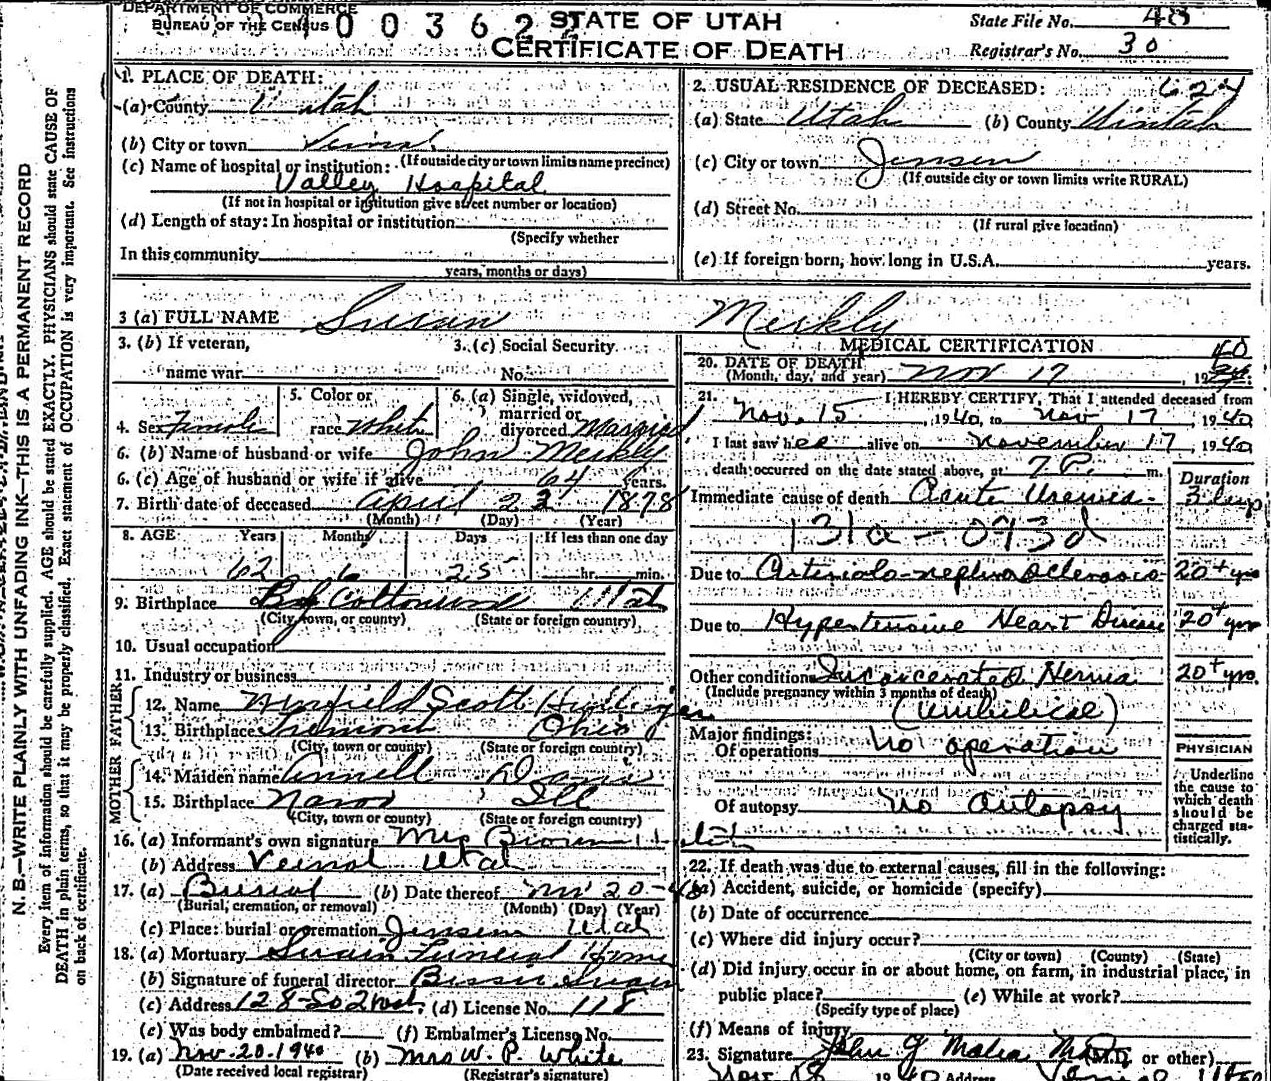 DEPARTMENT OF COMMERCE
BUREAU OF THE CENSUS
00362
STATE OF UTAH
CERTIFICATE OF DEATH
State File No. 48
Registrar's No. 30
N. B.—WRITE PLAINLY WITH UNFADING INK—THIS IS A PERMANENT RECORD
Every item of information should be carefully supplied. AGE should be stated EXACTLY. PHYSICIANS should state CAUSE OF
DEATH in plain terms, so that it may be properly classified. Exact statement of OCCUPATION is very important. See instructions
on back of certificate.
1. PLACE OF DEATH:
(a) County Uintah
(b) City or town Vernal
(If outside city or town limits name precinct)
(c) Name of hospital or institution:
Valley Hospital
(If not in hospital or institution give street number or location)
(d) Length of stay: In hospital or institution
(Specify whether
In this community
years, months or days)
2. USUAL RESIDENCE OF DECEASED: 624
(a) State Utah (b) County Uintah
(c) City or town Jensen
(If outside city or town limits write RURAL)
(d) Street No.
(If rural give location)
(e) If foreign born, how long in U.S.A. years.
3 (a) FULL NAME Susan Merkly
3. (b) If veteran, 3. (c) Social Security
name war No.
4. Sex Female 5. Color or race White 6. (a) Single, widowed, married or divorced Married
6. (b) Name of husband or wife John Merkly
6. (c) Age of husband or wife if alive 64 years.
7. Birth date of deceased April 23 1878
(Month) (Day) (Year)
8. AGE Years Months Days If less than one day
62 6 25 hr. min.
9. Birthplace Big Cottonwood Utah
(City, town, or county) (State or foreign country)
10. Usual occupation
11. Industry or business
FATHER
12. Name Scott
13. Birthplace Ohio
(City, town or county) (State or foreign country)
MOTHER
14. Maiden name Davis
15. Birthplace Ill
(City, town or county) (State or foreign country)
16. (a) Informant's own signature Mrs
(b) Address Vernal Utah
17. (a) Burial (b) Date thereof Nov 20-40
(Burial, cremation, or removal) (Month) (Day) (Year)
(c) Place: burial or cremation Jensen Utah
18. (a) Mortuary Swain Funeral Home
(b) Signature of funeral director Swain
(c) Address 128-So 2 West (d) License No. 118
(e) Was body embalmed? (f) Embalmer's License No.
19. (a) Nov. 20. 1940 (b) Mrs W. P. White
(Date received local registrar) (Registrar's signature)
MEDICAL CERTIFICATION
20. DATE OF DEATH
(Month, day, and year) Nov 17, 1940
21. I HEREBY CERTIFY, That I attended deceased from
Nov. 15, 1940, to Nov 17, 1940
I last saw her alive on November 17, 1940
death occurred on the date stated above, at 7 P. m.
Duration
Immediate cause of death Acute Uremia 3 days
131a-093d
Due to Arteriolo-nephrosclerosis 20+ yrs
Due to Hypertensive Heart Disease 20+ yrs
Other conditions Incarcerated Hernia 20+ yrs.
(Include pregnancy within 3 months of death)
(umbilical)
Major findings:
Of operations No operation
Of autopsy No autopsy
PHYSICIAN
Underline
the cause to
which death
should be
charged sta-
tistically.
22. If death was due to external causes, fill in the following:
(a) Accident, suicide, or homicide (specify)
(b) Date of occurrence
(c) Where did injury occur?
(City or town) (County) (State)
(d) Did injury occur in or about home, on farm, in industrial place, in
public place? (e) While at work?
(Specify type of place)
(f) Means of injury
23. Signature John G (M.D. or other)
Nov 18 1940 Address Vernal Utah